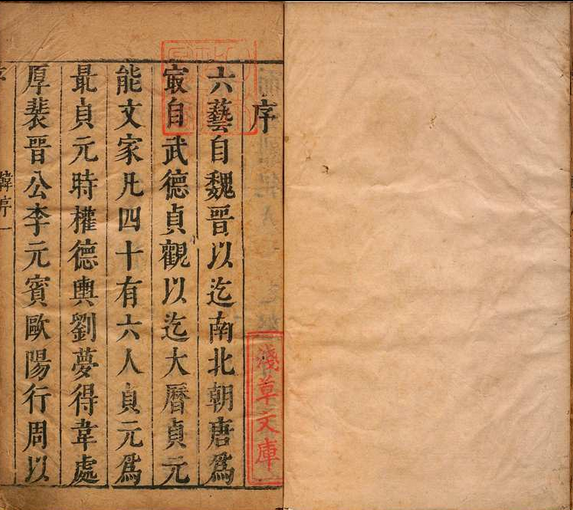 序
六藝自魏晉以迄南北朝唐爲
㝡自武德貞觀以迄大曆貞元
能文家凡四十有六人貞元爲
最貞元時權德輿劉夢得韋處
厚裴晉公李元賓歐陽行周以
韓序一
淺草文庫